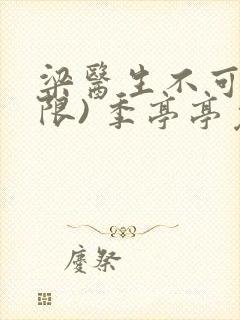 梁醫生不可
限) 季亭亭
慶祭